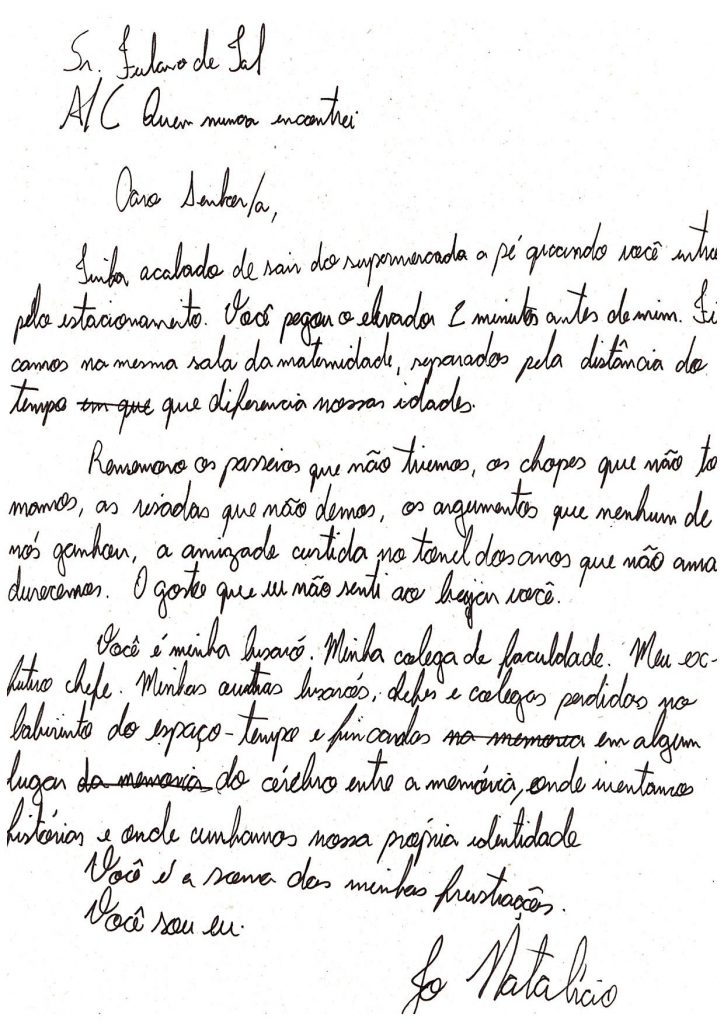 Sr. Fulano de Tal
A/C Quem nunca encontrei
Caro Senhor/a,
Tinha acabado de sair do supermercado a pé quando você entro
pelo estacionamento. Você pegou o elevador 2 minutos antes de mim. Fi
camos na mesma sala da maternidade, separados pela distância do
tempo em que que diferencia nossas idades.
Rememoro os passeios que não tivemos, os chopes que não to
mamos, as risadas que não demos, os argumentos que nenhum de
nós ganhou, a amizade curtida no tonel dos anos que não ama
durecemos. O gosto que eu não senti ao beijar você.
Você é minha bisavó. Minha colega de faculdade. Meu ex-
futuro chefe. Minhas outras bisavós, chefes e colegas perdidas no
labirinto do espaço-tempo e fincados na memoria em algum
lugar da memoria do cérebro entre a memória, onde inventamos
histórias e onde cunhamos nossa própria identidade
Você é a soma das minhas frustrações.
Você sou eu.
Jo Natalício